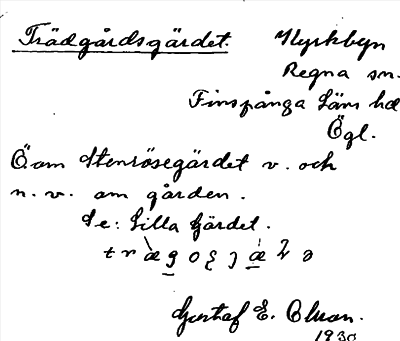 Trädgårdsgärdet. Kyrkbyn
Regna sn.
Finspånga läns hd
Ögl.
Ö. om Stenrösegärdet v. och
n.v. om gården.
Se: Lilla Gärdet.
Gustaf E.
1930